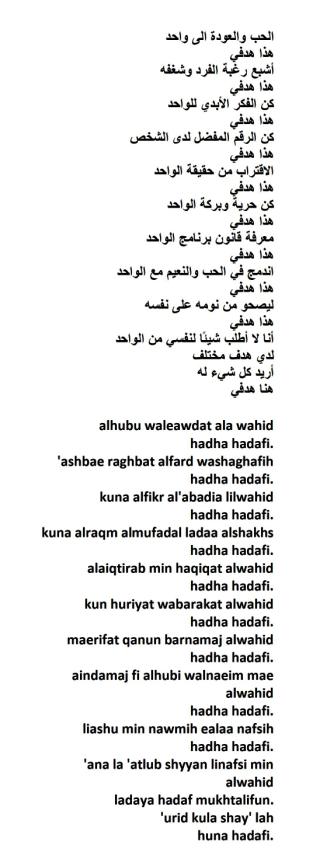 الحب والعودة الى واحد
هذا هدفي
أشبع رغبة الفرد وشغفه
هذا هدفي
كن الفكر الأبدي للواحد
هذا هدفي
كن الرقم المفضل لدى الشخص
هذا هدفي
الاقتراب من حقيقة الواحد
هذا هدفي
كن حرية وبركة الواحد
هذا هدفي
معرفة قانون برنامج الواحد
هذا هدفي
اندمج في الحب والنعيم مع الواحد
هذا هدفي
ليصحو من نومه على نفسه
هذا هدفي
أنا لا أطلب شيئًا لنفسي من الواحد
لدي هدف مختلف
أريد كل شيء له
هنا هدفي
alhubu waleawdat ala wahid
hadha hadafi.
'ashbae raghbat alfard washaghafih
hadha hadafi.
kuna alfikr al'abadia lilwahid
hadha hadafi.
kuna alraqm almufadal ladaa alshakhs
hadha hadafi.
alaiqtirab min haqiqat alwahid
hadha hadafi.
kun huriyat wabarakat alwahid
hadha hadafi.
maerifat qanun barnamaj alwahid
hadha hadafi.
aindamaj fi alhubi walnaeim mae
alwahid
hadha hadafi.
liashu min nawmih ealaa nafsih
hadha hadafi.
'ana la 'atlub shyyan linafsi min
alwahid
ladaya hadaf mukhtalifun.
'urid kula shay' lah
huna hadafi.